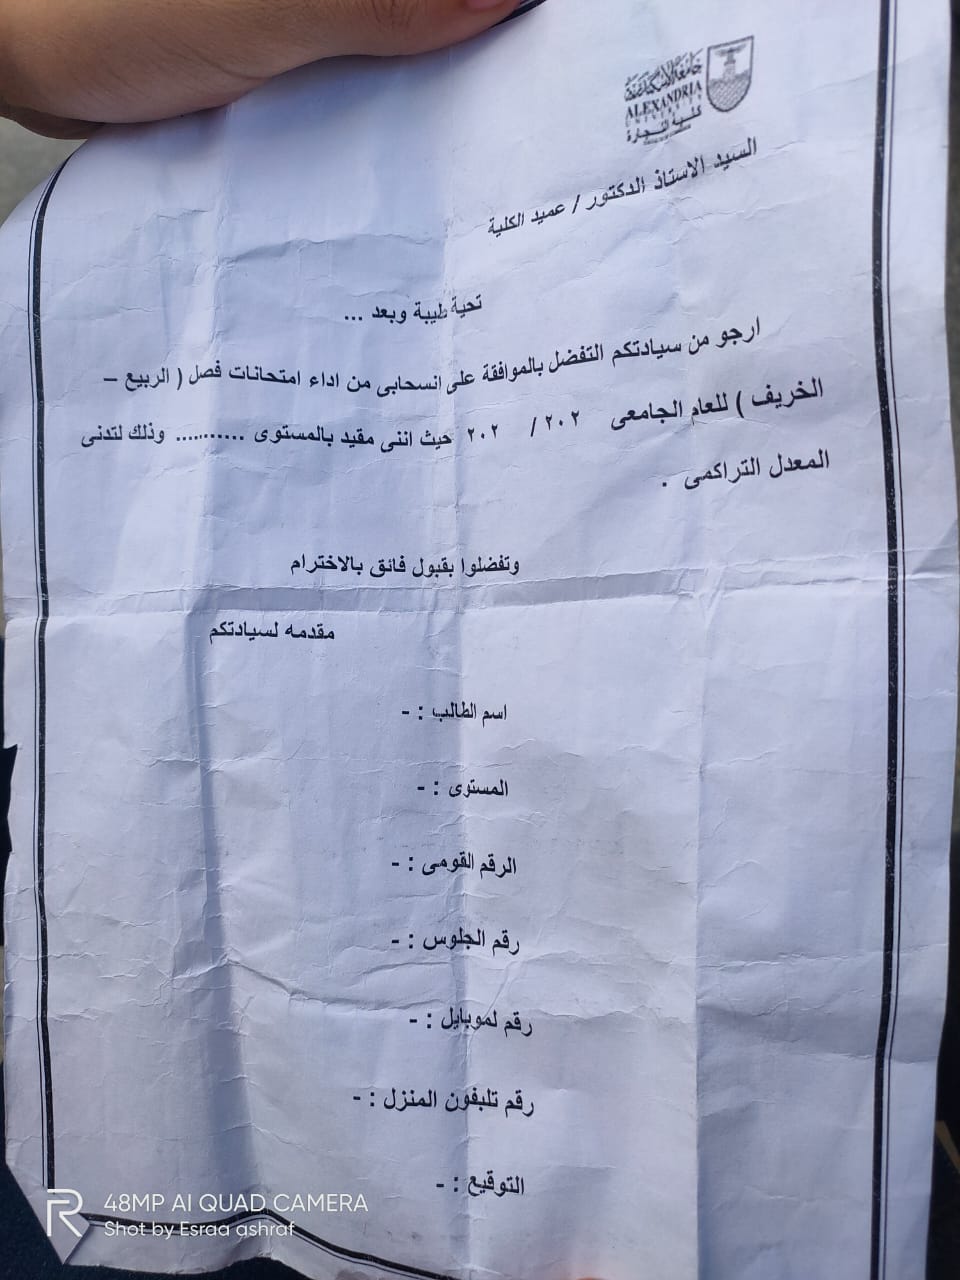 جامعة الإسكندرية
ALEXANDRIA
UNIVERSITY
كلية التجارة
السيد الاستاذ الدكتور / عميد الكلية
تحية طيبة وبعد ...
ارجو من سيادتكم التفضل بالموافقة على انسحابى من اداء امتحانات فصل ( الربيع –
الخريف ) للعام الجامعى ٢٠٢ / ٢٠٢ حيث اننى مقيد بالمستوى ........... وذلك لتدنى
المعدل التراكمى .
وتفضلوا بقبول فائق بالاخترام
مقدمه لسيادتكم
اسم الطالب : -
المستوى : -
الرقم القومى : -
رقم الجلوس : -
رقم لموبايل : -
رقم تليفون المنزل : -
التوقيع : -
48MP AI QUAD CAMERA
Shot by Esraa ashraf